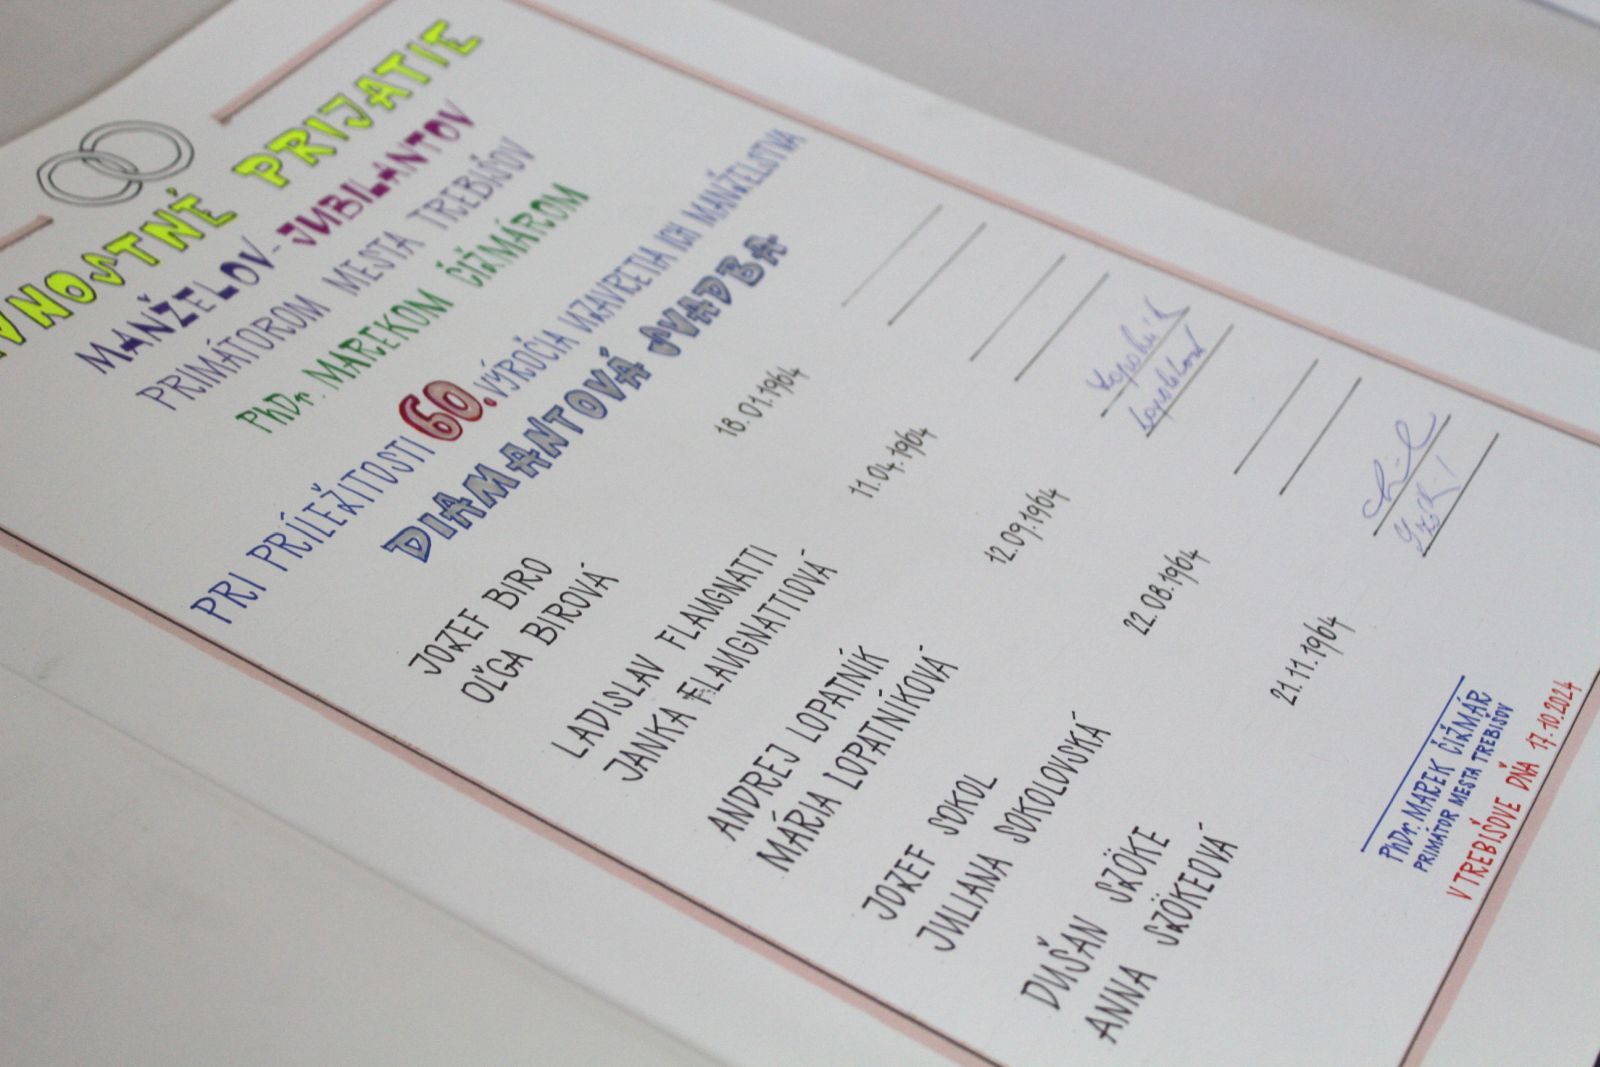 VNOSTNÉ PRIJATIE
MANŽELOV-JUBILANTOV
PRIMÁTOROM MESTA TREBIŠOV
PhDr. MAREKOM ČIŽMÁROM
PRI PRÍLEŽITOSTI 60. VÝROČIA UZAVRETIA ICH MANŽELSTVA
DIAMANTOVÁ SVADBA
JOZEF BIRO
OĽGA BIROVÁ
18.01.1964
LADISLAV FLAUGNATTI
JANKA FLAUGNATTIOVÁ
11.04.1964
ANDREJ LOPATNÍK
MÁRIA LOPATNÍKOVÁ
12.09.1964
JOZEF SOKOL
JULIANA SOKOLOVSKÁ
22.08.1964
DUŠAN SZÖKE
ANNA SZÖKEOVÁ
21.11.1964
PhDr. MAREK ČIŽMÁR
PRIMÁTOR MESTA TREBIŠOV
V TREBIŠOVE DŇA 17.10.2024